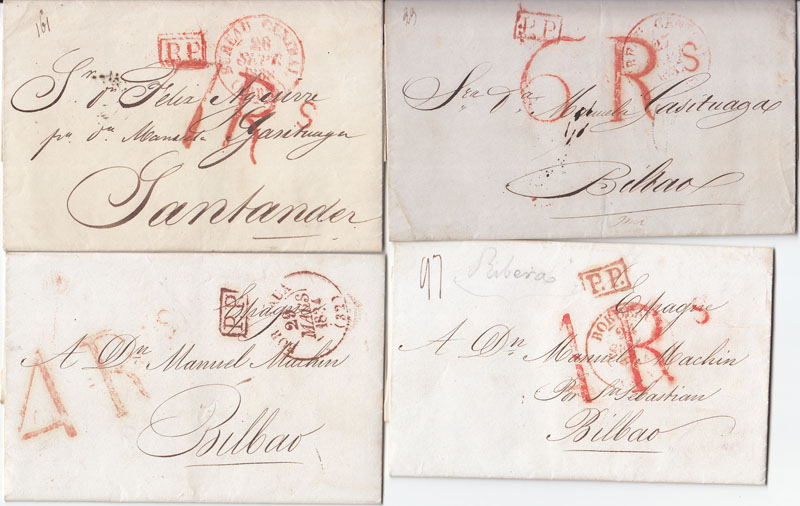 161
P.P.
BUREAU CENTRAL
28
SEPT
Sr. Dn. Felix Aguirre
1 Rs
pr. Da. Manuela Gasituaga
Santander
P.P.
6 Rs
Sra. Da. Manuela Gasituaga
Bilbao
P.P.
Espagne
29
MARS
(32)
A Dn. Manuel Machin
4 Rs
Bilbao
97
Ribera
P.P.
Espagne
1 Rs
A Dn. Manuel Machin
Por Sn. Sebastian
Bilbao